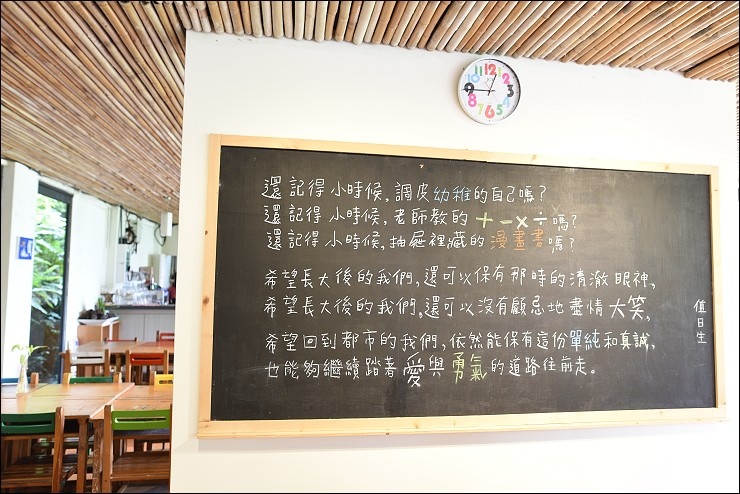 10 11 12 1 2 3 4 5 6 7 8 9
還記得小時候,調皮幼稚的自己嗎?
還記得小時候,老師教的+-×÷嗎?
還記得小時候,抽屜裡藏的漫畫書嗎?
希望長大後的我們,還可以保有那時的清澈眼神,
希望長大後的我們,還可以沒有顧忌地盡情大笑,
希望回到都市的我們,依然能保有這份單純和真誠,
也能夠繼續踏著愛與勇氣的道路往前走。
值日生